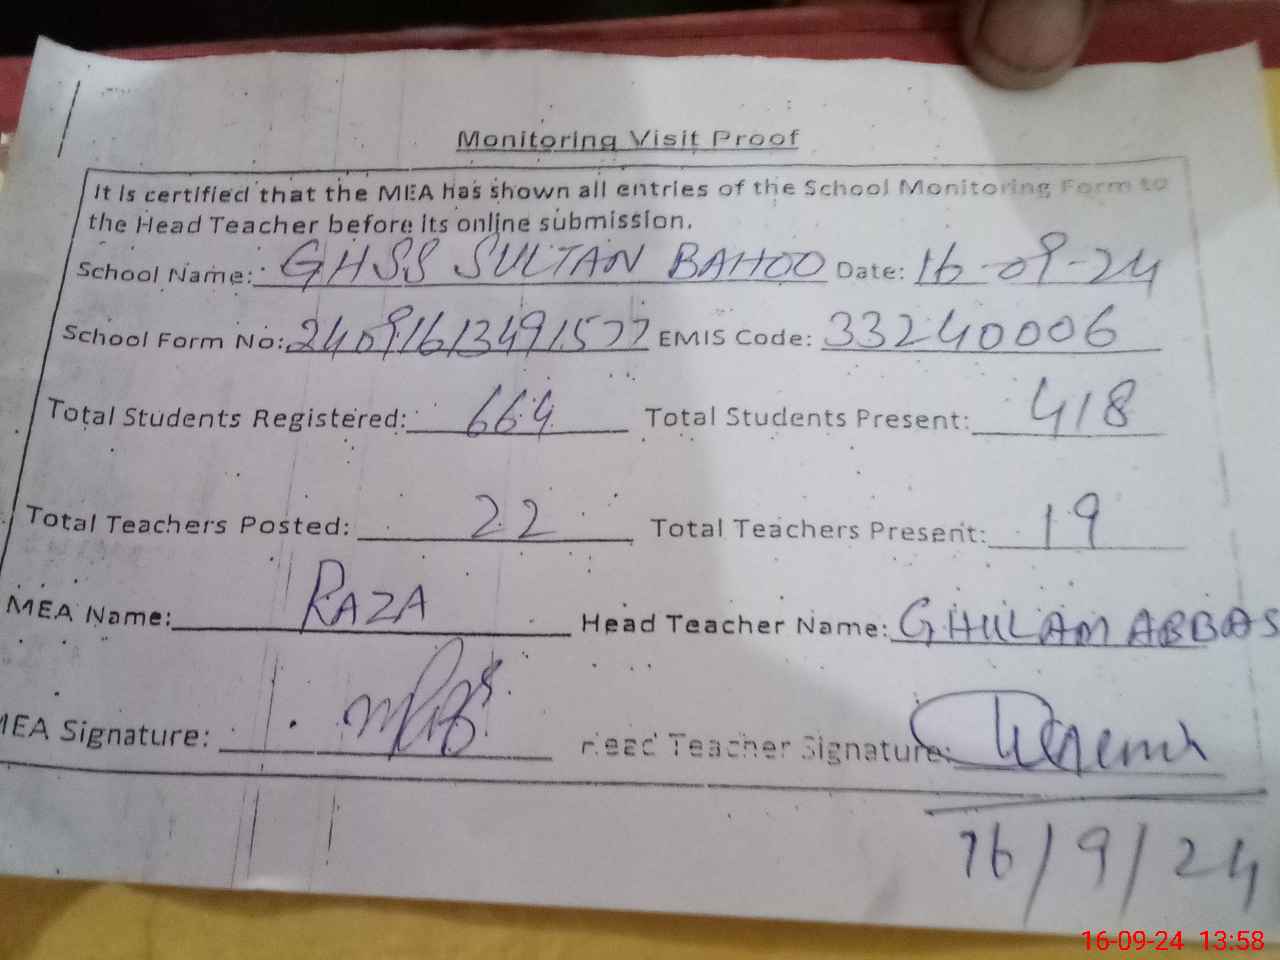 Monitoring Visit Proof
It is certified that the MEA has shown all entries of the School Monitoring Form to
the Head Teacher before its online submission.
School Name: GHSS SULTAN BAHOO Date: 16-09-24
School Form No: 24091613491577 EMIS Code: 33240006
Total Students Registered: 664 Total Students Present: 418
Total Teachers Posted: 22 Total Teachers Present: 19
MEA Name: RAZA Head Teacher Name: GHULAM ABBAS
MEA Signature: Head Teacher Signature:
16/9/24
16-09-24 13:58